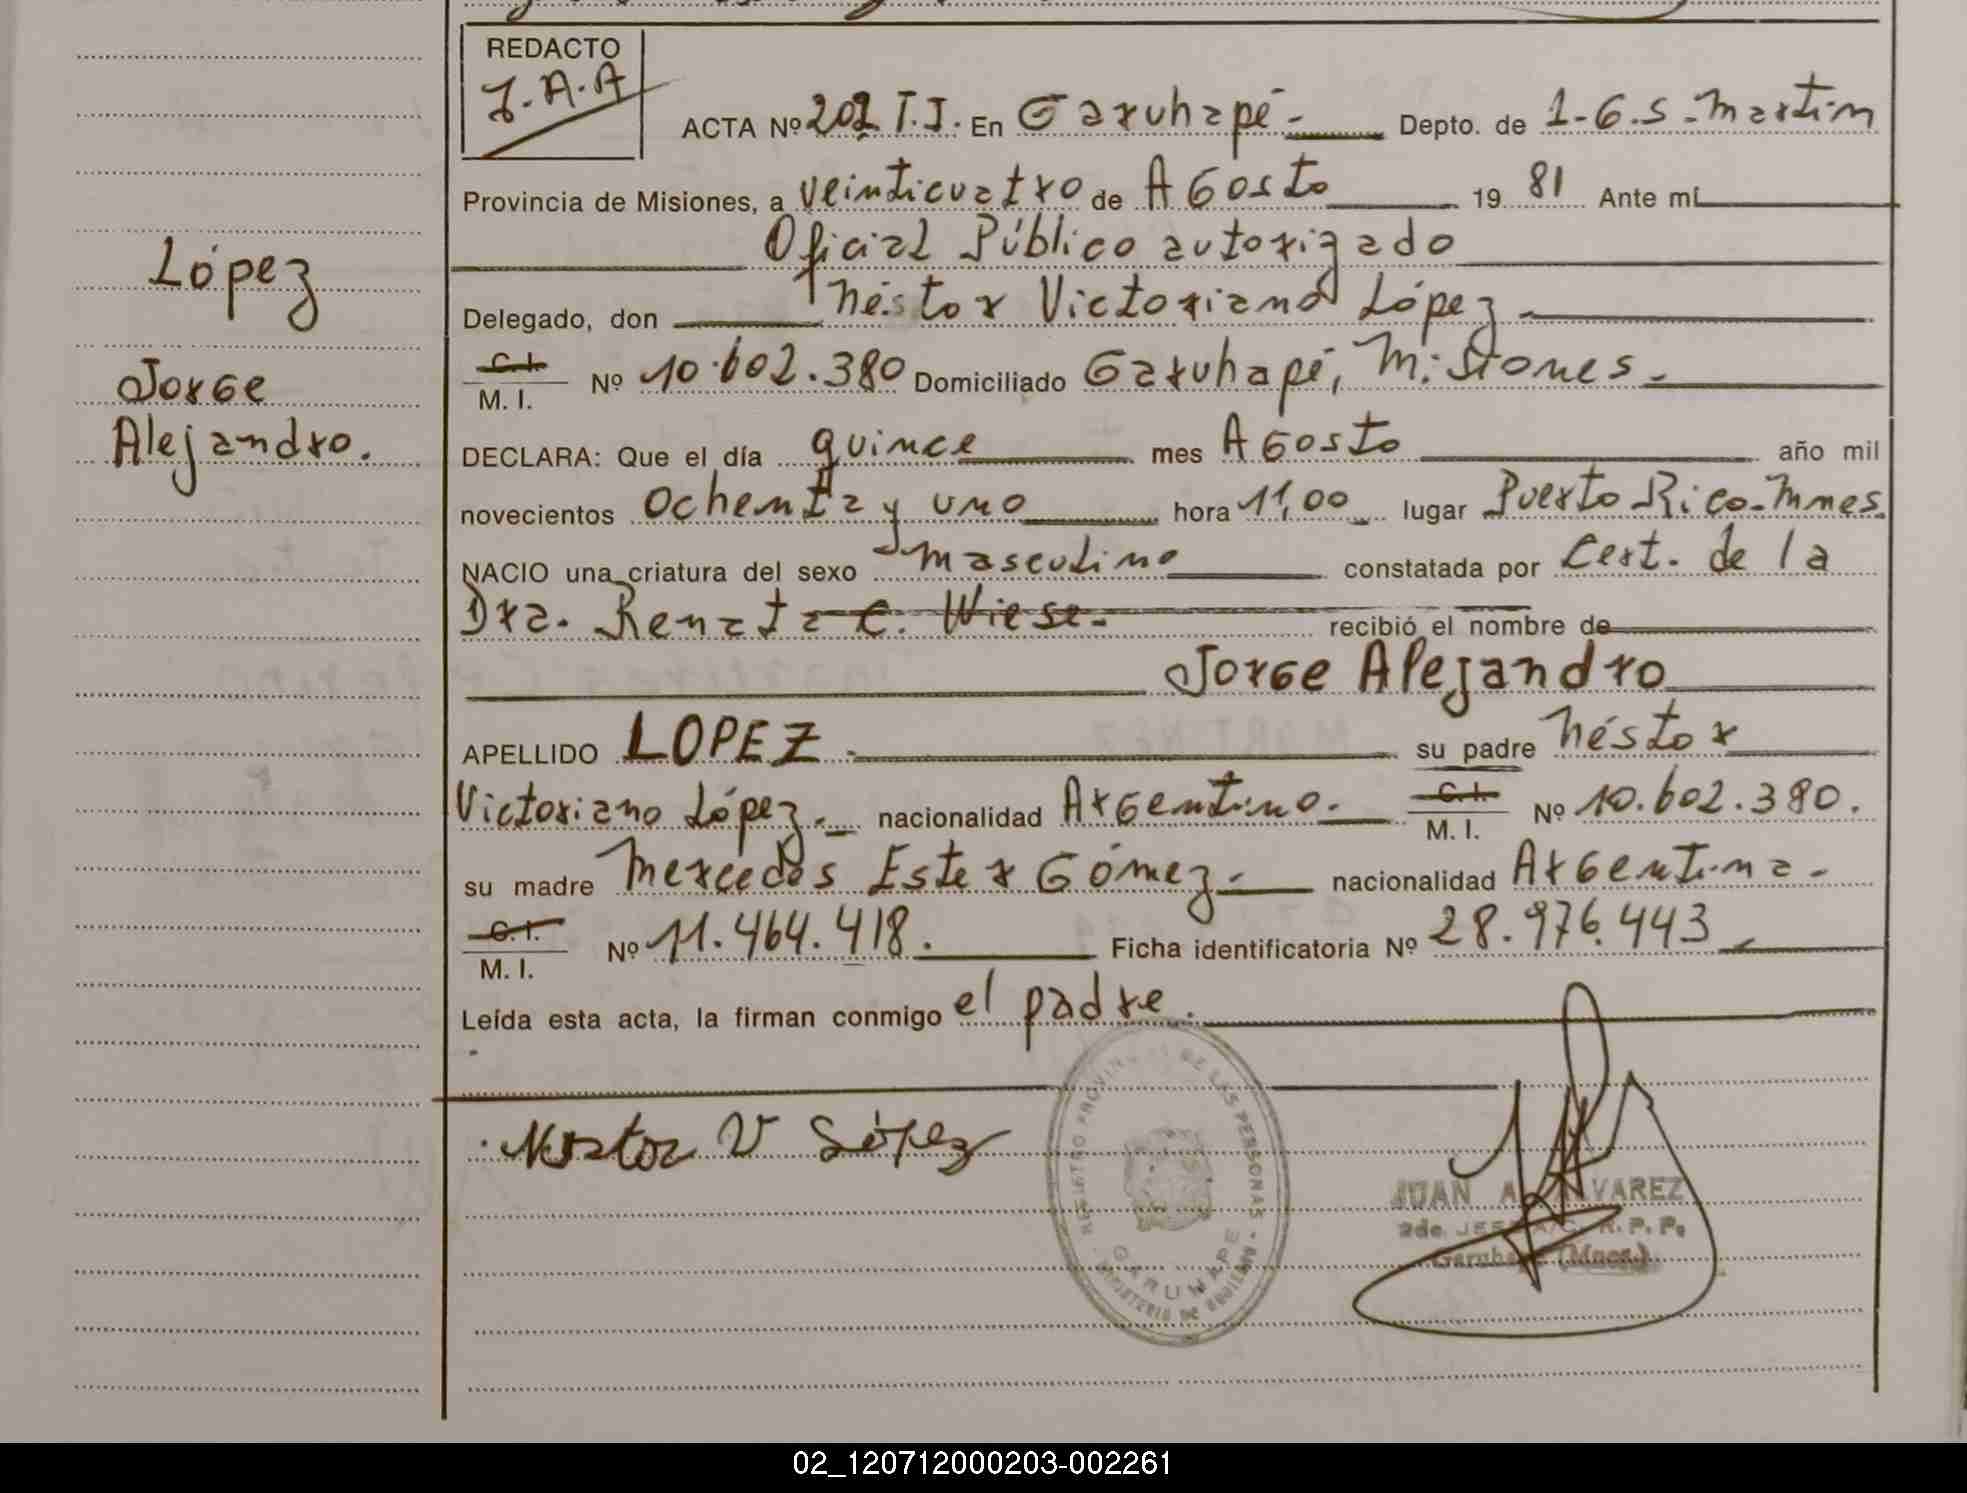 REDACTO
J.A.A
ACTA Nº 202 T.I. En Garuhapé - Depto. de L.G.S. Martín
Provincia de Misiones, a veinticuatro de Agosto 19 81 Ante mí
Oficial Público autorizado
Delegado, don Néstor Victoriano López
C.I. M. I. Nº 10.602.380 Domiciliado Garuhapé, Misiones.
López
Jorge
Alejandro.
DECLARA: Que el día quince mes Agosto año mil
novecientos Ochenta y uno hora 11,00 lugar Puerto Rico-Mnes.
NACIO una criatura del sexo masculino constatada por Cert. de la
Dra. Renata C. Wiese. recibió el nombre de
Jorge Alejandro
APELLIDO LOPEZ su padre Néstor
Victoriano López. nacionalidad Argentino. C.I. M. I. Nº 10.602.380.
su madre Mercedes Ester Gómez. nacionalidad Argentina.
C.I. M. I. Nº 11.464.418. Ficha identificatoria Nº 28.976.443
Leída esta acta, la firman conmigo el padre.
Nestor V López
REGISTRO PROVINCIAL DE LAS PERSONAS
GARUHAPE
MINISTERIO DE GOBIERNO
JUAN A. ALVAREZ
R. P. P.
Garuhapé (Mnes.)
02_120712000203-002261